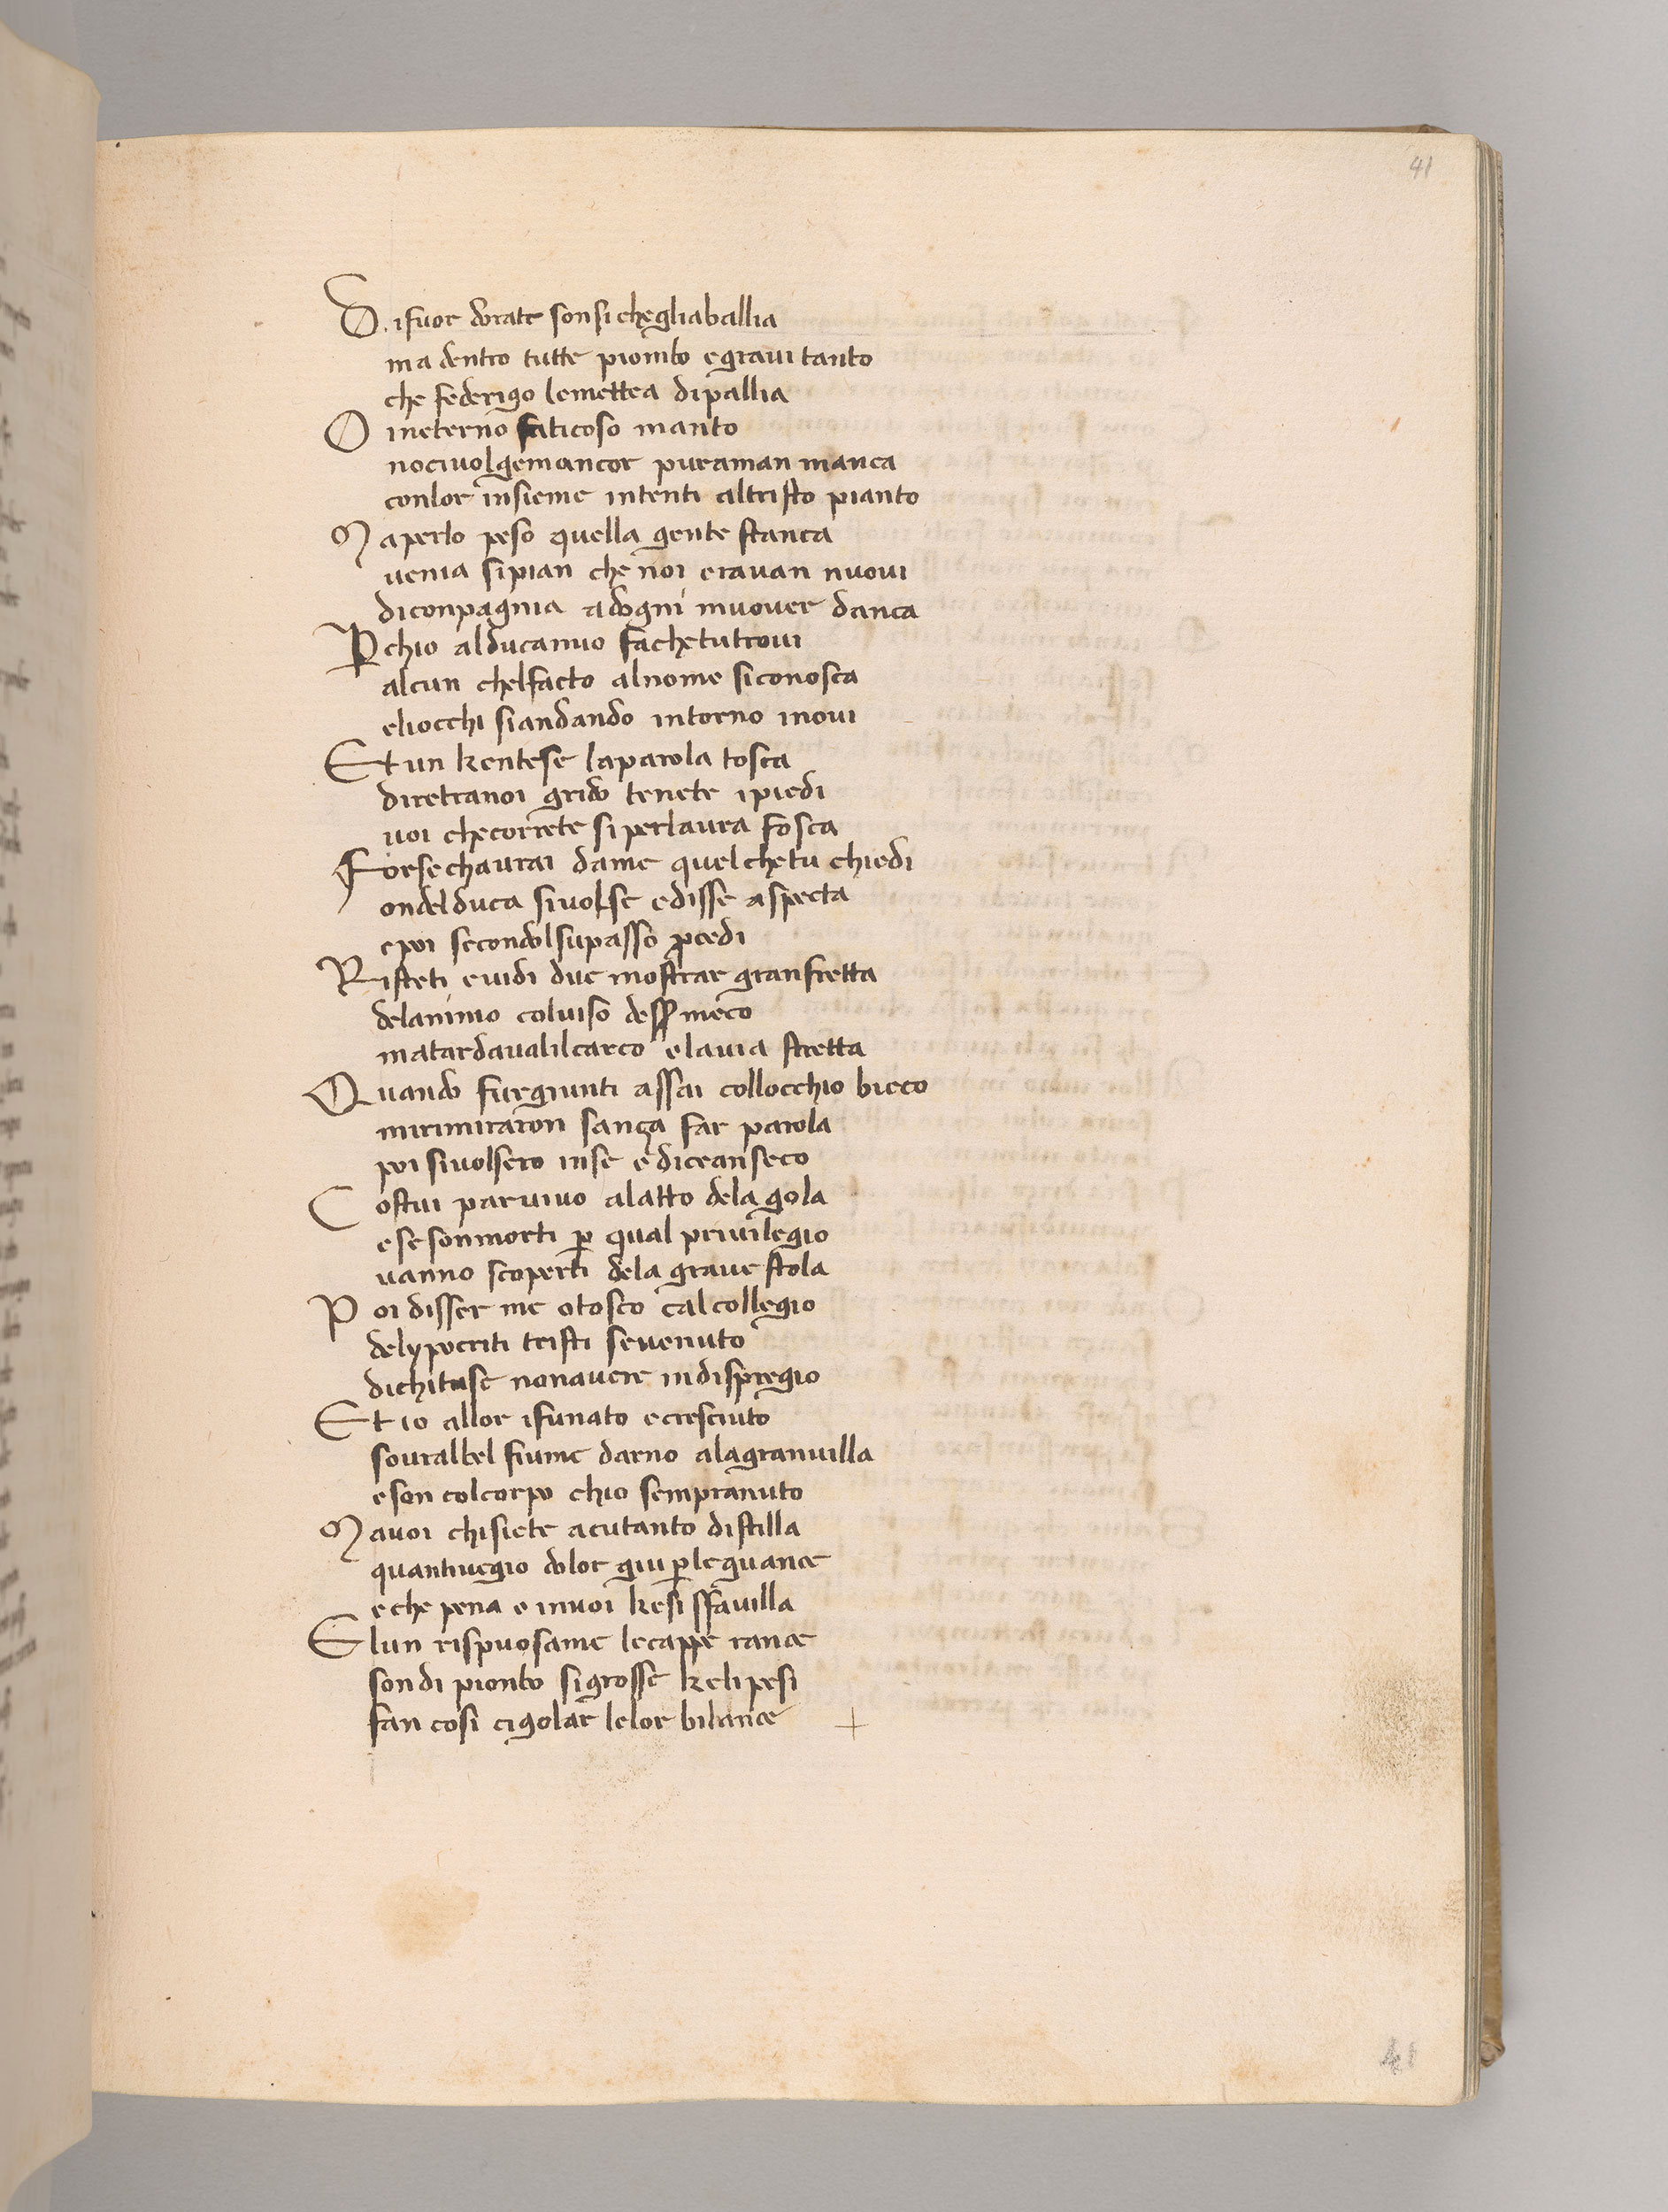 41
Di fuor dorate son si che gli aballia
ma dentro tutte piombo e gravi tanto
che federigo le mettea di pallia
O in eterno faticoso manto
noci volgemancor pur a man manca
con lor insieme intenti al tristo pianto
Ma per lo peso quella gente stanca
venia si pian che noi eravan nuovi
di conpagnia ad ogni muover danca
Pchio al duca mio fa che tu trovi
alcun chel facto al nome si conosca
e li occhi si andando intorno movi
Et un kentese la parola tosca
diretra noi grido tenete i piedi
voi che correte si per laura fosca
Forse chavrai da me quel che tu chiedi
ondel duca si volse e disse aspecta
e poi secondol su passo pcedi
Ristetti e vidi due mostrar gran fretta
de lanimo col viso dessp meco
ma tardavali lcarco e la via stretta
Quando fur giunti assai collocchio bieco
mi rimiraron sança far parola
poi si volsero in se e dicean seco
Costui par vivo alatto de la gola
e se son morti p qual privilegio
vanno scoperti de la grave stola
Poi disser me o tosco cal collegio
de lypocriti tristi se venuto
di chi tu se non avere in dispregio
Et io a llor i fu nato e cresciuto
sovral bel fiume darno a la gran villa
e son col corpo chio sempr avuto
Ma voi chi siete a cu tanto distilla
quanti vegio dolor giu p le guance
e che pena e in voi ke si sfavilla
E lun rispuosa me le cappe rance
son di pionbo si grosse ke li pesi
fan cosi cigolar le lor bilance +
41